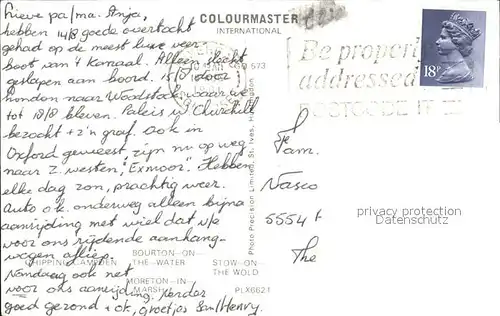 Lieve pa/ma. Anja,
hebben 14/8 goede overtocht
gehad op de meest luxe veer
boot van 't Kanaal. Alleen slecht
geslapen aan boord. 15/8 door
London naar Woodstock waar we
tot 18/8 bleven. Paleis v Churchill
bezocht + z'n graf. Ook in
Oxford geweest, zijn nu op weg
naar Z. westen, "Exmoor". Hebben
elke dag zon, prachtig weer.
Auto o.k. onderweg alleen bijna
aanrijding met wiel dat v/e
voor ons rijdende aanhang-
wagen afliep.
Vandaag ook net
voor ons aanrijding. Verder
goed gezond + ok, groetjes Henry.
COLOURMASTER
INTERNATIONAL
Be properly
addressed
POSTCODE IT
18P
Fam.
Nasco
5554
The
privacy protection
Datenschutz
Photo Precision Limited, St. Ives, Huntingdon
CHIPPING CAMPDEN
BOURTON-ON-
THE-WATER
STOW-ON
THE WOLD
MORETON-IN
MARSH
PLX6621